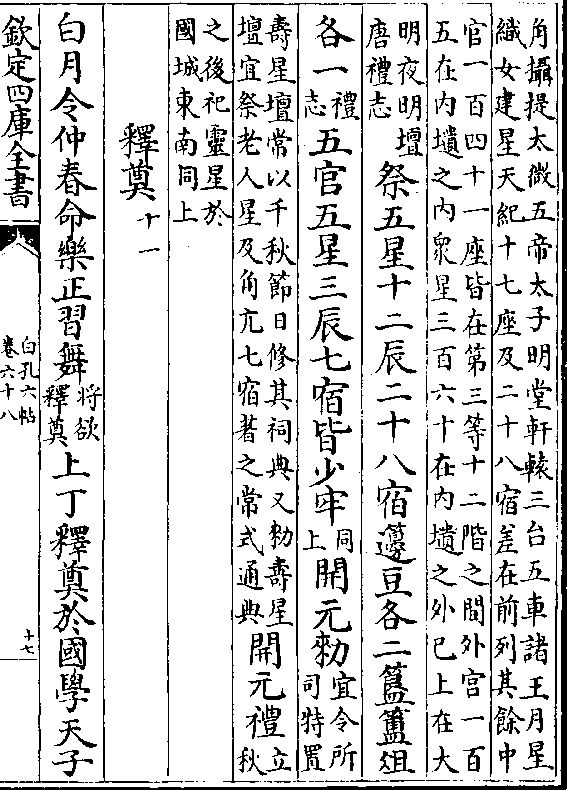 角攝提太微五帝太子明堂軒轅三台五車諸王月星
織女建星天紀十七座及二十八宿差在前列其餘中
官一百四十一座皆在第三等十二階之間外官一百
五在內壝之內衆星三百六十在內壝之外已上在大
明夜明壇
唐禮志
祭五星十二辰二十八宿籩豆各二簠簋俎
各一
禮
志
五官五星三辰七宿皆少牢
同
上
開元勑
宜令所
司特置
壽星壇常以千秋節日修其祠典又勑壽星
壇宜祭老人星及角亢七宿著之常式通典
開元禮
立
秋
之後祀靈星於
國城東南同上
釋奠十一
白月令仲春命樂正習舞
將欲
釋奠
上丁釋奠於國學天子
欽定四庫全書
白孔六帖
卷六十八
十七